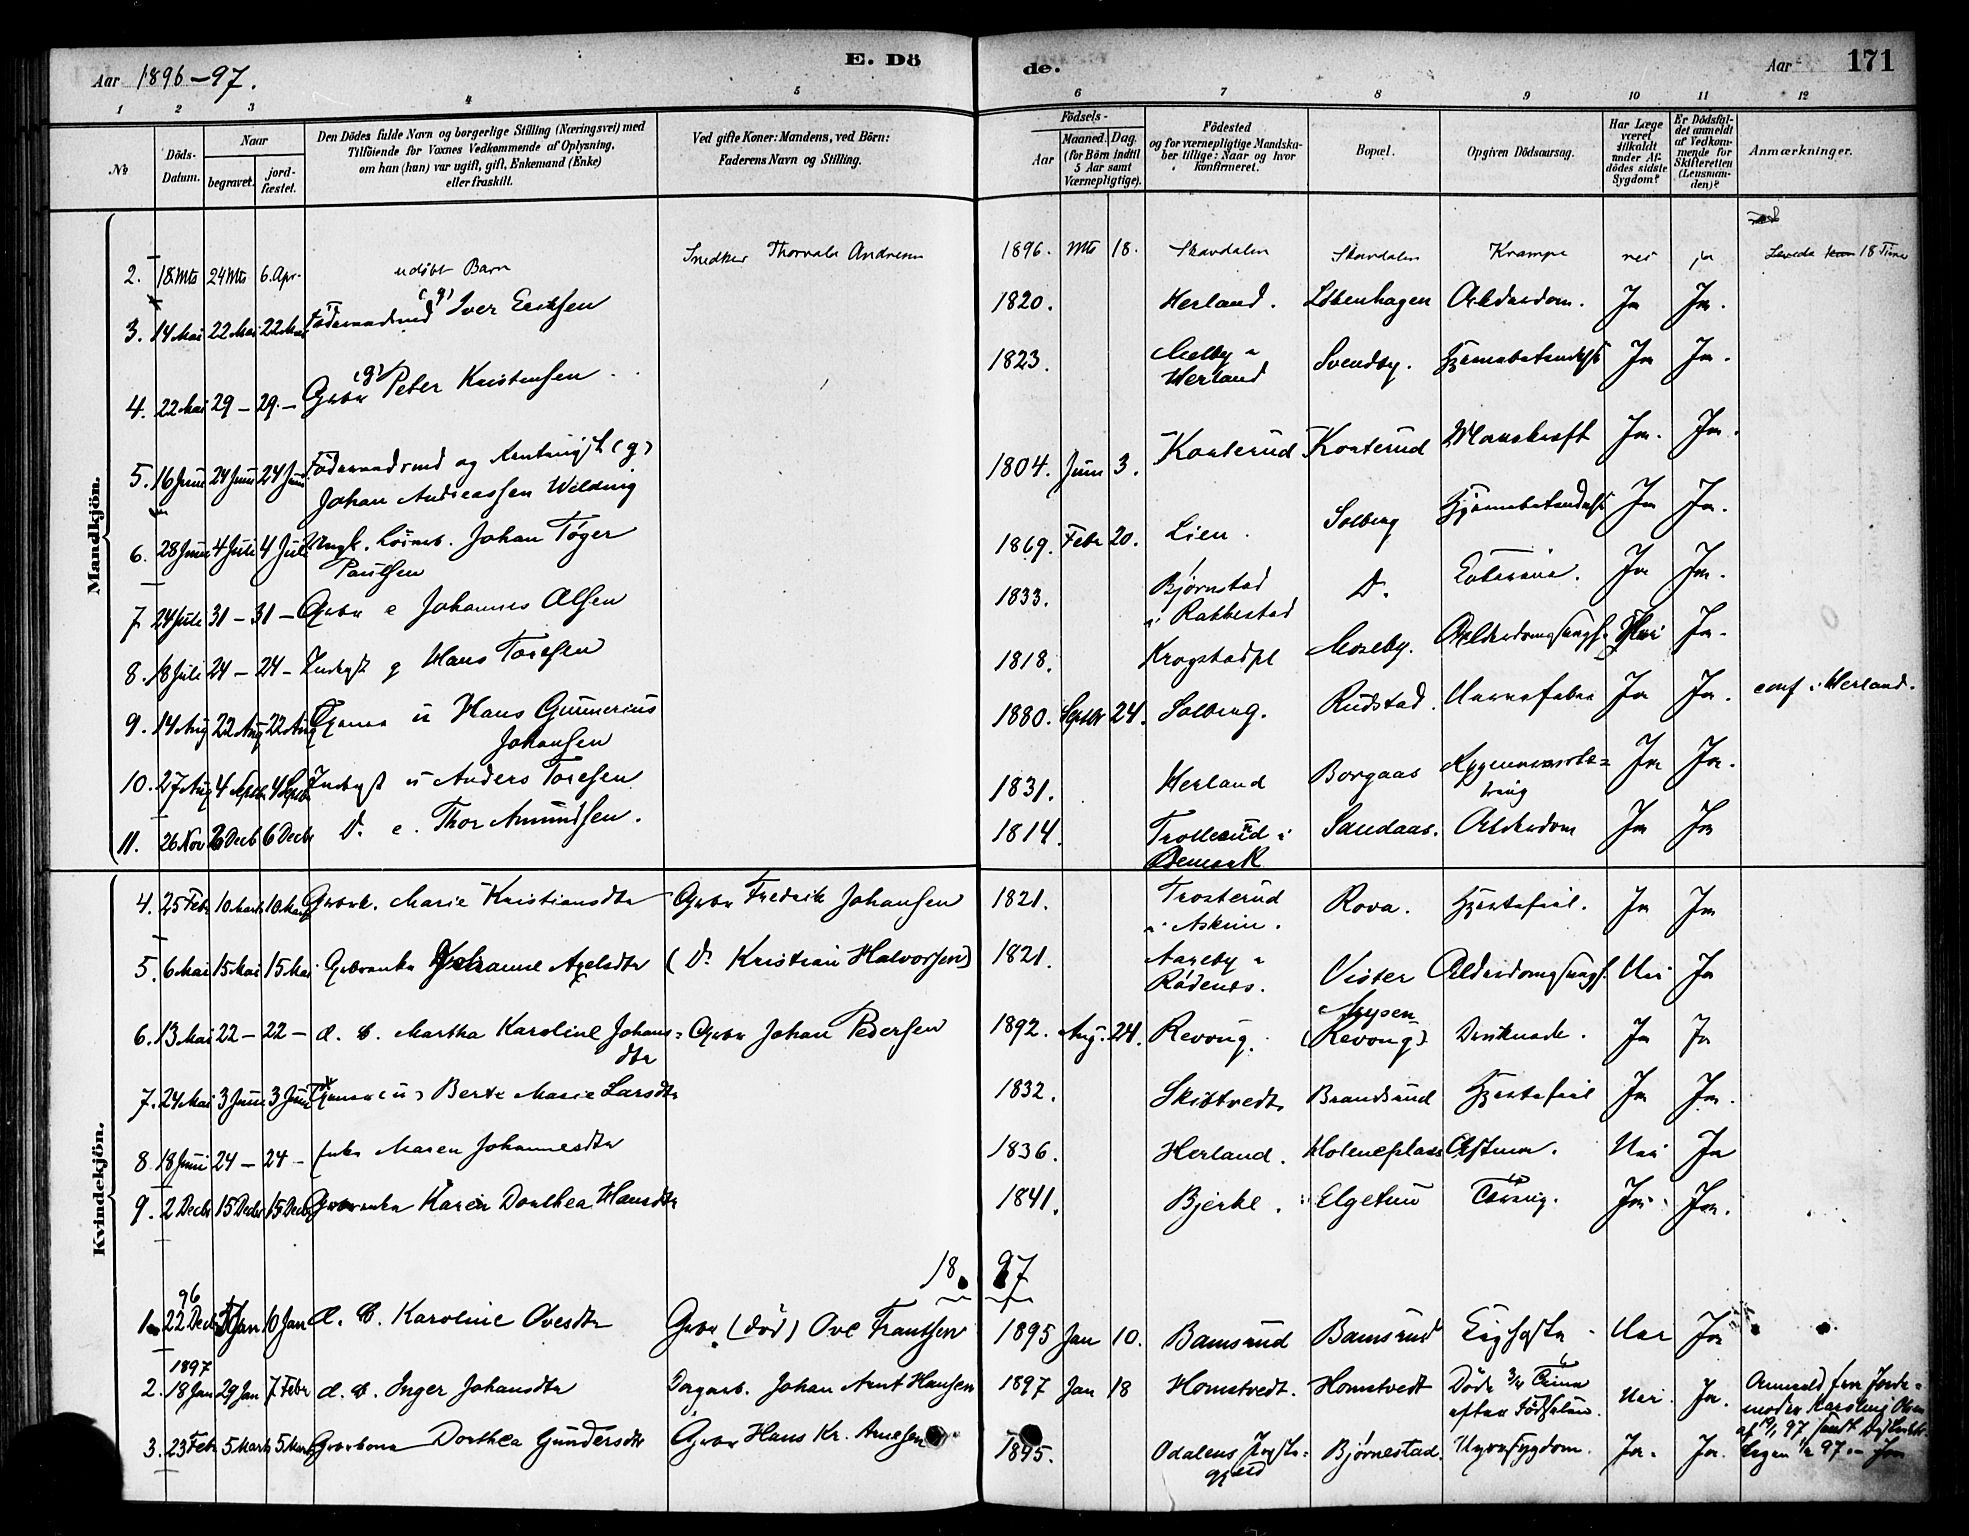 Aar 1896-97.
E. Dö
de.
Aar
171
1 2 3 4 5 6 7 8 9 10 11 12
No
Döds-Datum.
Naar
begravet.
jord-fæstet.
Den Dödes fulde Navn og borgerlige Stilling (Næringsvei) med
Tilföiende for Voxnes Vedkommende af Oplysning,
om han (hun) var ugift, gift, Enkemand (Enke)
eller fraskilt.
Ved gifte Koner: Mandens, ved Börn:
Faderens Navn og Stilling.
Födsels-
Aar
Maaned. Dag.
(for Börn indtil
5 Aar samt
Værnepligtige).
Födested
og for værnepligtige Mandska-
ber tillige: Naar og hvor
konfirmeret.
Bopæl.
Opgiven Dödsaarsag.
Har Læge
været
tilkaldt
under Af-
dödes sidste
Sygdom?
Er Dödsfal-
det anmeldt
af Vedkom-
mende for
Skifteretten
(Lensman-
den)?
Anmærkninger.
Mandkjön.
2. 18 Mts 24 Mts 6. Apr. udöbt Barn Snedker Thorvald Andresen 1896. Mts 18. Skavdalen Skavdalen Krampe nei ja Levede 18 Timer
3. 14 Mai 22 Mai 22 Mai Föderaadsmd (g) Iver Eriksen 1820. Herland. Lökenhagen Alderdom. Ja Ja.
4. 22 Mai 29 - 29. - Gbr (g) Peter Kristensen 1823. Melby i Herland Svendby. Ja Ja.
5. 16 Juni 24 Juni 24 Juni Föderaadsmd og (g)
Johan Andreassen Welding 1804. Juni 3. Konterud Konterud Ja. Ja.
6. 28 Juni 4 Juli 4 Juli Ungk. Johan Töger
Paulsen 1869. Febr 20. Lien. Solberg Ja Ja.
7 24 Juli 31 - 31 - Gbr e Johannes Olsen 1833. Bjørnstad
i Rakkestad D. Ja Ja.
8. 18 Juli 24 - 24 - Inderst g Hans Toresen 1818. Krogstadpl Moseby. Ja.
9. 14 Aug 22 Aug 22 Aug Tjener u Hans Gunnerius
Johansen 1880. Septbr 24. Solberg. Rudstad. Ja Ja. conf i Herland.
10. 27 Aug 4 Septbr 4 Septbr Inderst u Anders Toresen 1831. Herland Borgaas Ja Ja.
11. 26 Nov 6 Decb 6 Decbr D. e. Thor Amundsen. 1814. Trollerud i
Ødemark Sandaas. Alderdom Ja Ja
Kvindekjön.
4. 25 Febr 10 Marts 10 Marts Gbrk. Marie Kristiansdtr Gbr Fredrik Johansen 1821. Trosterud
i Askim. Rova. Hjertefeil. Ja Ja
5. 6 Mai 15 Mai 15 Mai Gbrenke Johanne Axelsdtr (D. Kristian Halvorsen) 1821. Aaseby i
Rödenes. Vister Nei Ja
6. 13 Mai 22 - 22 - d. B. Martha Karoline Johans=
dtr Gbr Johan Pedersen 1892. Aug. 24. Revoug. Mysen
(Revoug) Ja Ja
7. 24 Mai 3 Juni 3 Juni Tjener (u) Berte Marie Larsdtr 1832. Skibtvedt Brandsrud Hjertefeil Ja Ja.
8 18 Juni 24 - 24 - Enke Maren Johannesdtr 1836. Herland. Moleneplads Astma. Nei Ja
9. 2 Decbr 15 Decbr 15 Decbr Gbrenke Karen Dorthea Hansdtr 1841. Bjerke. Elgetun Tæring. Ja. Ja.
18 97
96
1 22 Decbr Jan 10 Jan d. B. Karoline Ovesdtr Gbr (död) Ove Frantsen 1895 Jan 10. Bamsrud Bamsrud Ja
1897
2. 18 Jan 29 Jan 7 Febr d. B. Inger Johansdtr Dagarb. Johan Arnt Hansen 1897 Jan 18 Homstvedt. Homstvedt Döde 3/4 Time
efter Födselen. Nei. Ja. Anmeldt fra Jorde=
moder
3. 23 Febr 5 Marts 5 Marts Gbrkone Dorthea Gundersdtr Gbr Hans Kr. Arnesen 1895. Odalens Præste=
gjeld Bjørnestad. Nyresygdom. Ja. Ja.